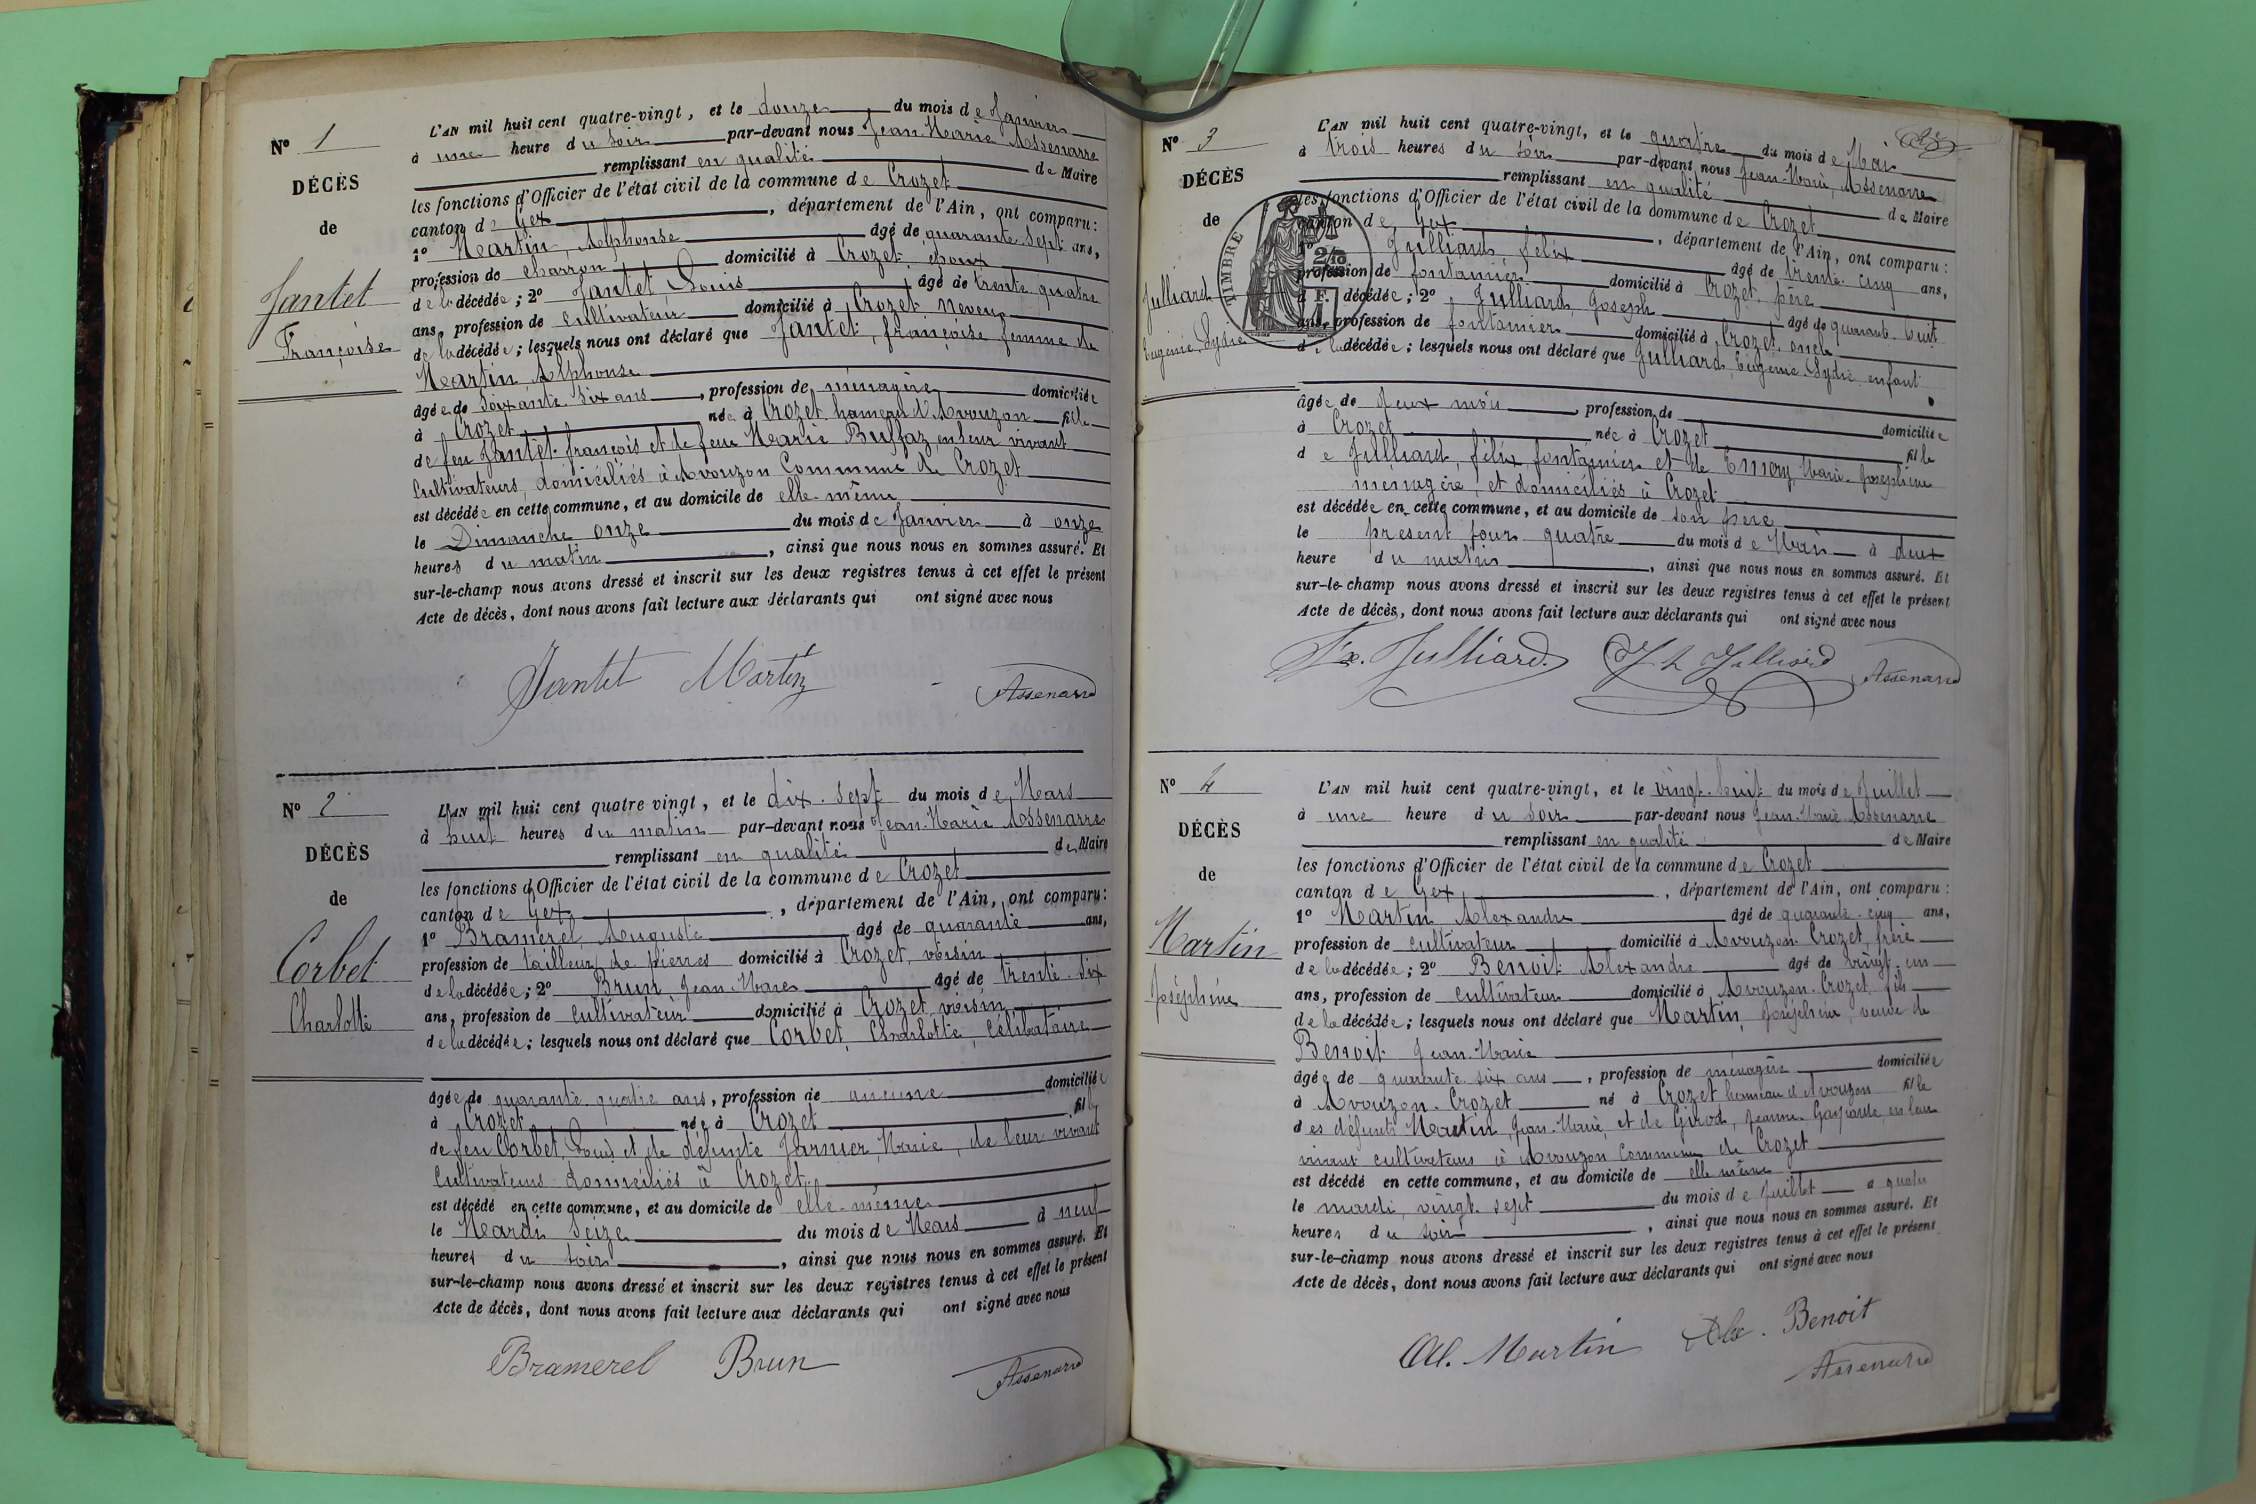 N° 1
DÉCÈS
de
Jantet
Françoise
L'AN mil huit cent quatre-vingt, et le douze du mois de Janvier
à une heure du soir par-devant nous Jean-Marie Assenarre
remplissant en qualité de Maire
les fonctions d'Officier de l'état civil de la commune de Crozet
canton de Gex, département de l'Ain, ont comparu :
1° Martin, Alphonse âgé de quarante-sept ans,
profession de charron domicilié à Crozet, époux
de la décédée ; 2° Jantet Louis âgé de trente quatre
ans, profession de cultivateur domicilié à Crozet, neveu
de la décédée ; lesquels nous ont déclaré que Jantet, françoise femme de
Martin, Alphonse
âgée de soixante-six ans, profession de ménagère domiciliée
à Crozet née à Crozet hameau d'Avouzon fille
de feu Jantet françois et de feue Marie Buffaz, en leur vivant
Cultivateurs, domiciliés à Avouzon Commune de Crozet
est décédée en cette commune, et au domicile de elle-même
le Dimanche onze du mois de Janvier à onze
heures du matin, ainsi que nous nous en sommes assuré. Et
sur-le-champ nous avons dressé et inscrit sur les deux registres tenus à cet effet le présent
Acte de décès, dont nous avons fait lecture aux déclarants qui ont signé avec nous
Jantet Martin Assenarre
N° 2
DÉCÈS
de
Corbet
Charlotte
L'AN mil huit cent quatre-vingt, et le dix-sept du mois de Mars
à huit heures du matin par-devant nous Jean-Marie Assenarre
remplissant en qualité de Maire
les fonctions d'Officier de l'état civil de la commune de Crozet
canton de Gex, département de l'Ain, ont comparu :
1° Bramerel, Auguste âgé de quarante ans,
profession de tailleur de pierres domicilié à Crozet, voisin
de la décédée ; 2° Brun Jean-Marie âgé de trente-six
ans, profession de cultivateur domicilié à Crozet, voisin
de la décédée ; lesquels nous ont déclaré que Corbet, Charlotte, célibataire
âgée de quarante-quatre ans, profession de aucune domiciliée
à Crozet née à Crozet fille
de feu Corbet, Louis et de défunte Jarnier, Marie, de leur vivant
Cultivateurs domiciliés à Crozet
est décédé en cette commune, et au domicile de elle-même
le Mardi seize du mois de Mars à neuf
heures du soir, ainsi que nous nous en sommes assuré. Et
sur-le-champ nous avons dressé et inscrit sur les deux registres tenus à cet effet le présent
Acte de décès, dont nous avons fait lecture aux déclarants qui ont signé avec nous
Bramerel Brun Assenarre
N° 3
DÉCÈS
de
Julliard
Eugénie-Lydie
TIMBRE
L'AN mil huit cent quatre-vingt, et le quatre du mois de Mai
à trois heures du soir par-devant nous Jean-Marie, Assenarre
remplissant en qualité de Maire
les fonctions d'Officier de l'état civil de la commune de Crozet
canton de Gex, département de l'Ain, ont comparu :
1° Julliard félix âgé de trente-cinq ans,
profession de fontainier domicilié à Crozet, père
d F. décédée ; 2° Julliard, Joseph âgé de quarante-huit
ans, profession de fontainier domicilié à Crozet, oncle
de la décédée ; lesquels nous ont déclaré que Julliard, Eugénie-Lydie, enfant
âgée de deux mois, profession de domiciliée
à Crozet née à Crozet fille
de Julliard, félix, fontainier et de Emery, Marie-Joséphine
ménagère, et domiciliés à Crozet
est décédée en cette commune, et au domicile de son père
le présent jour quatre du mois de Mai à deux
heure du matin, ainsi que nous nous en sommes assuré. Et
sur-le-champ nous avons dressé et inscrit sur les deux registres tenus à cet effet le présent
Acte de décès, dont nous avons fait lecture aux déclarants qui ont signé avec nous
Fx. Julliard. Jh Julliard Assenarre
N° 4
DÉCÈS
de
Martin
Joséphine
L'AN mil huit cent quatre-vingt, et le vingt-huit du mois de Juillet
à une heure du soir par-devant nous Jean-Marie Assenarre
remplissant en qualité de Maire
les fonctions d'Officier de l'état civil de la commune de Crozet
canton de Gex, département de l'Ain, ont comparu :
1° Martin Alexandre âgé de quarante-cinq ans,
profession de cultivateur domicilié à Avouzon-Crozet, frère
de la décédée ; 2° Benoit Alexandre âgé de vingt-un
ans, profession de cultivateur domicilié à Avouzon-Crozet, fils
de la décédée ; lesquels nous ont déclaré que Martin, Joséphine, veuve de
Benoit Jean-Marie
âgée de quarante-six ans, profession de ménagère domiciliée
à Avouzon-Crozet né à Crozet hameau d'Avouzon fille
des défunts Martin, Jean-Marie, et de Girod, Jeanne-Gasparde, en leur
vivant cultivateurs à Avouzon Commune de Crozet
est décédé en cette commune, et au domicile de elle même
le mardi, vingt-sept du mois de Juillet à quatre
heures du soir, ainsi que nous nous en sommes assuré. Et
sur-le-champ nous avons dressé et inscrit sur les deux registres tenus à cet effet le présent
Acte de décès, dont nous avons fait lecture aux déclarants qui ont signé avec nous
Al. Martin Alx. Benoit Assenarre